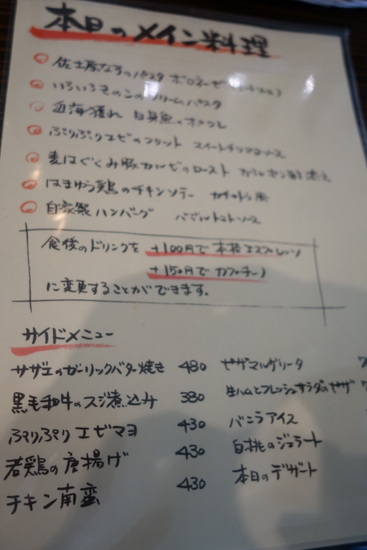 本日のメイン料理
佐土原なすのパスタ ボロネーゼ
いろいろきのこのクリームパスタ
近海獲れ 白身魚のオーブン
ぷりぷりエビのフリット スイートチリマヨソース
麦はぐくみ豚カルビのロースト
はまゆう鶏のチキンソテー
自家製ハンバーグ バジルトマトソース
食後のドリンクを +100円で 本格エスプレッソ
+150円で カプチーノ
に変更することができます。
サイドメニュー
サザエのガーリックバター焼き 480
黒毛和牛のスジ煮込み 380
ぷりぷりエビマヨ 430
若鶏の唐揚げ 430
チキン南蛮 430
ピザマルゲリータ
生ハムとフレッシュサラダのピザ
バニラアイス
白桃のジェラート
本日のデザート